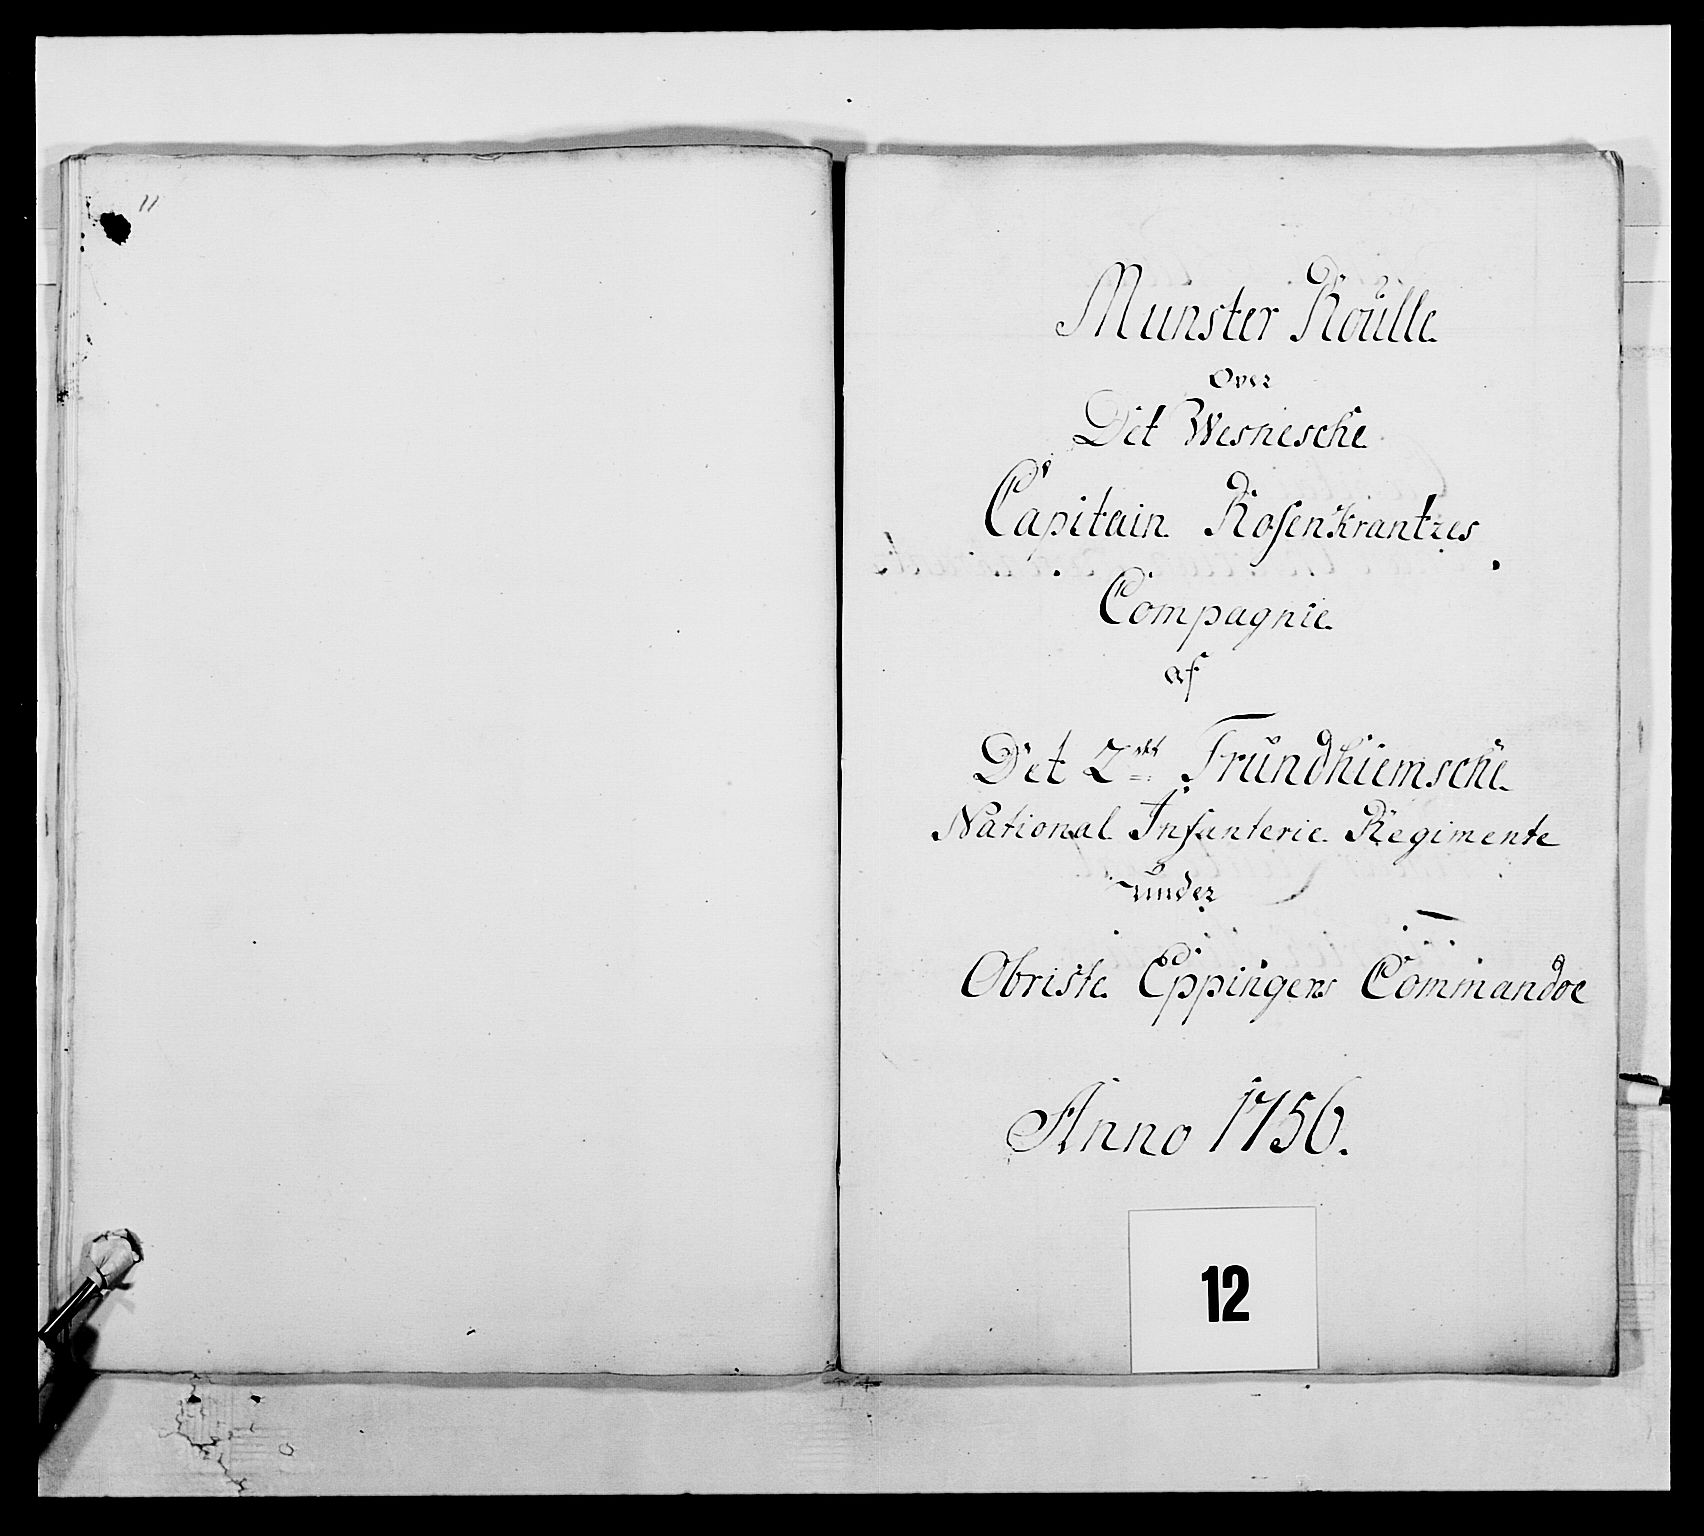 11
Munster Roulle
Over
Det Wesnesche
Capitain Rosenkrantzes
Compagnie
af
Det 2det Trundhiemsche
National Infanterie Regimente
under
Obriste Eppingers Commandoe
Anno 1756.
12